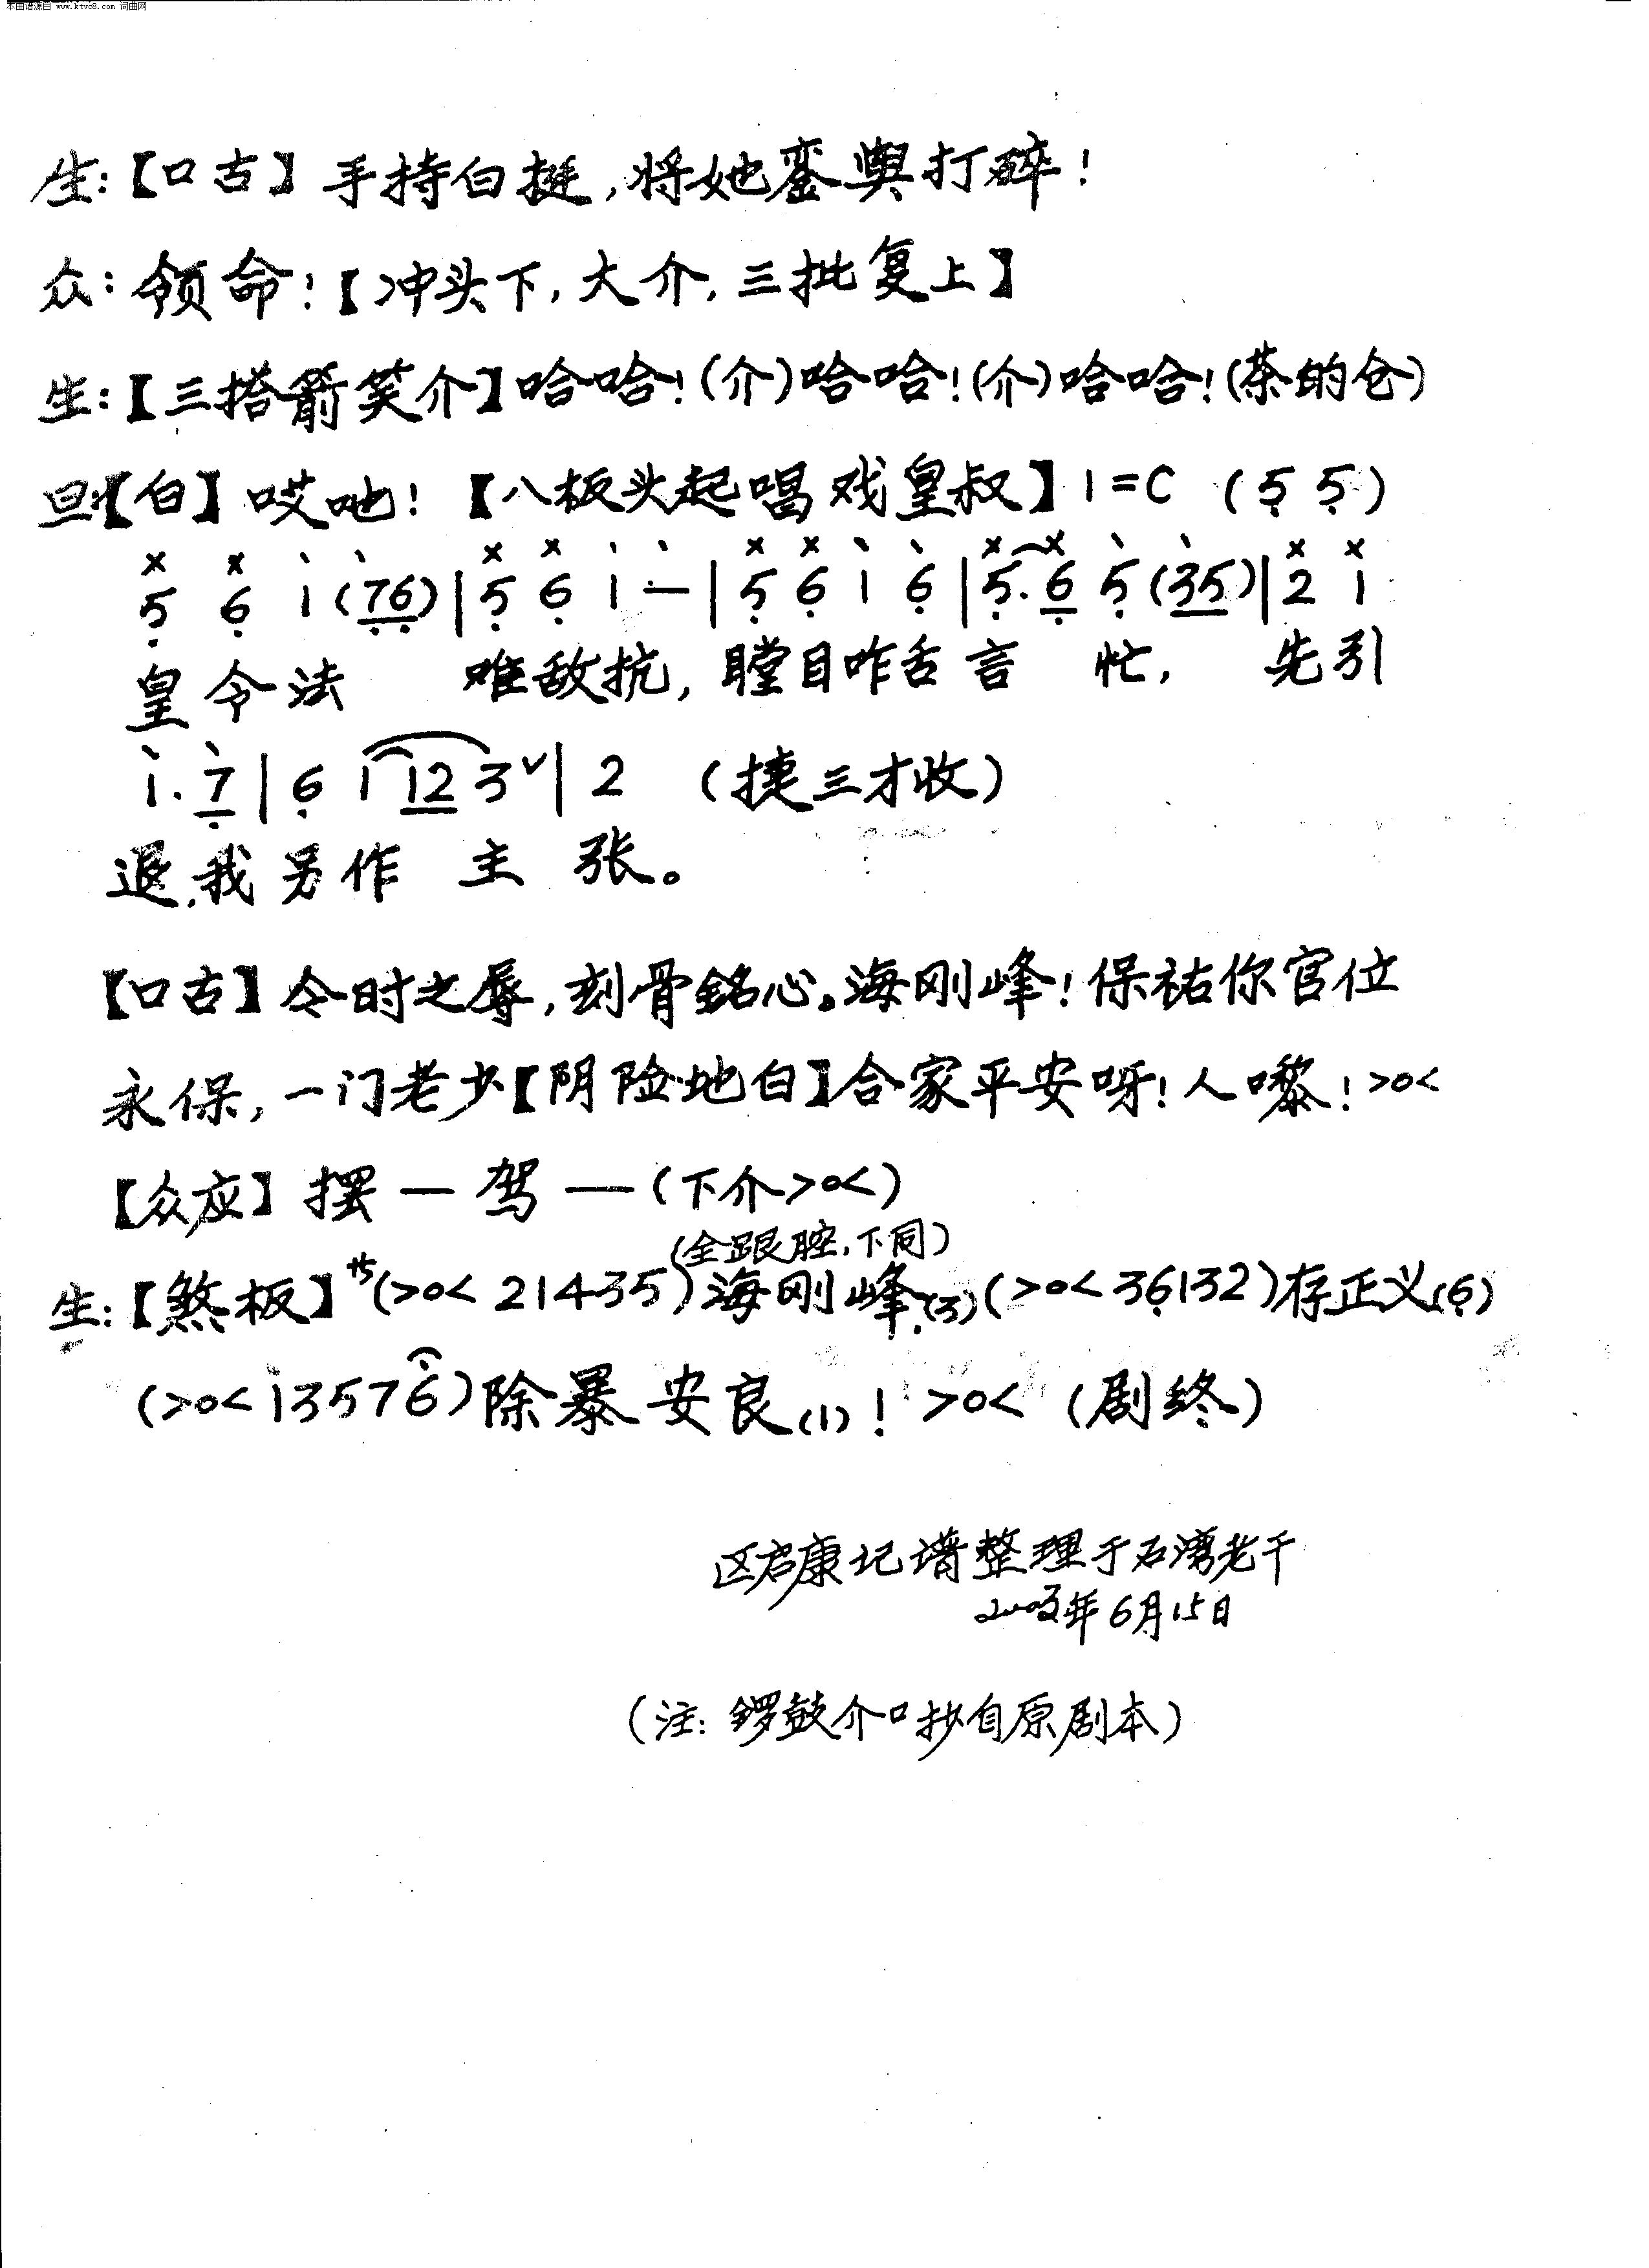 本曲谱源自 www.ktvc8.com 词曲网
生:【口古】手持白挺,将她銮舆打碎!
众:领命!【冲头下,大介,三批复上】
生:【三搭箭笑介】哈哈!(介)哈哈!(介)哈哈!(茶的仓)
旦:【白】哎吔!【八板头起唱戏皇叔】1=C (5̣ 5̣)
× × ヽ ヽ × × ヽ ヽ × × ヽ ヽ × × ヽ ヽ × ×
5̣ 6̣ 1 (7̣6̣) | 5̣ 6̣ 1 — | 5̣ 6̣ 1 6̣ | 5̣. 6̣ 5̣ (35) | 2 1
皇令法 难敌抗,瞠目咋舌言 忙, 先引
ヽ ヽ
1. 7̣ | 6̣ 1 12 3 ˅ | 2 (捷三才收)
退,我另作 主 张。
【口古】今时之辱,刻骨铭心。海刚峰!保祐你官位
永保,一门老少【阴险地白】合家平安呀!人嚟!>o<
【众应】摆—驾—(下介>o<)
(全跟腔,下同)
生:【煞板】サ(>o< 21435)海刚峰(3)(>o< 36̣132)存正义(6̣)
(>o< i3576)除暴安良(1)! >o< (剧终)
区启康记谱整理于石湾老干
年6月15日
(注:锣鼓介口抄自原剧本)